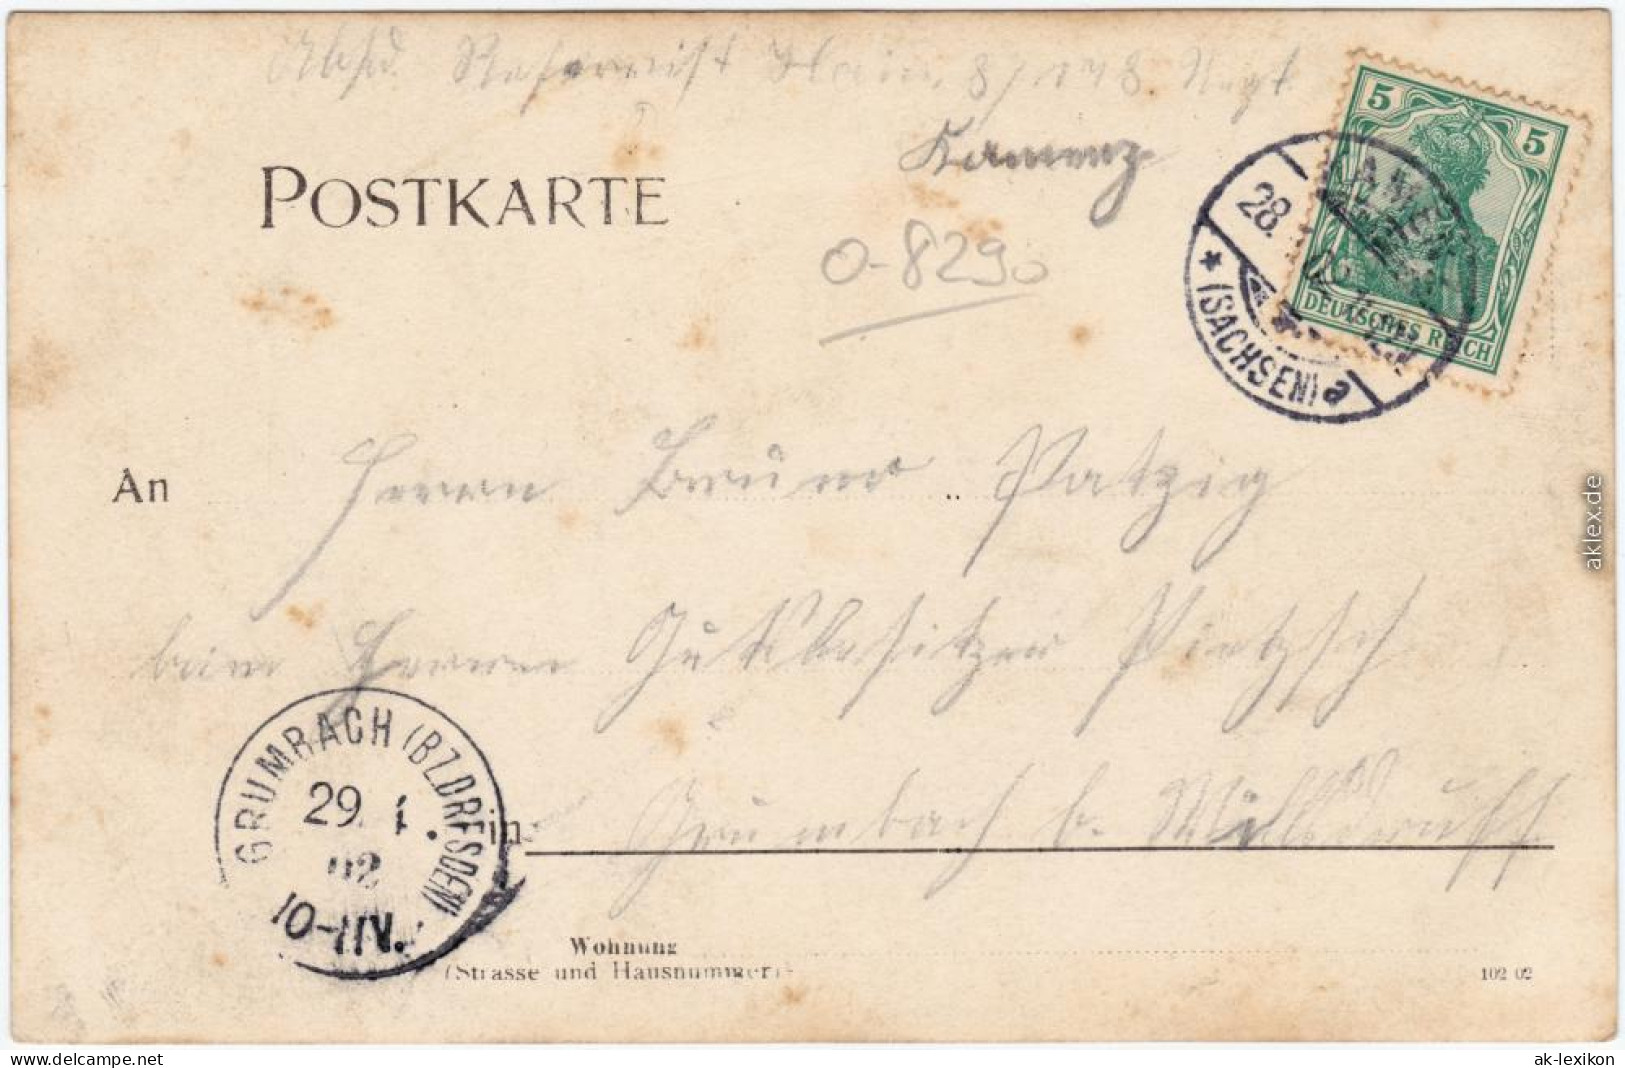 Abs. Reservist Hain, 8/178. Regt.
Kamenz
POSTKARTE
O-8290
5 5
DEUTSCHES REICH
KAMENZ
28.
* (SACHSEN) a
An Herrn Bruno Patzig
beim Herrn Gutsbesitzer Pietzsch
in Grumbach b. Wilsdruff
GRUMBACH (BZ. DRESDEN)
29. 1.
02
10-11V.
Wohnung
(Strasse und Hausnummer)
102 02
aklex.de
www.delcampe.net
ak-lexikon